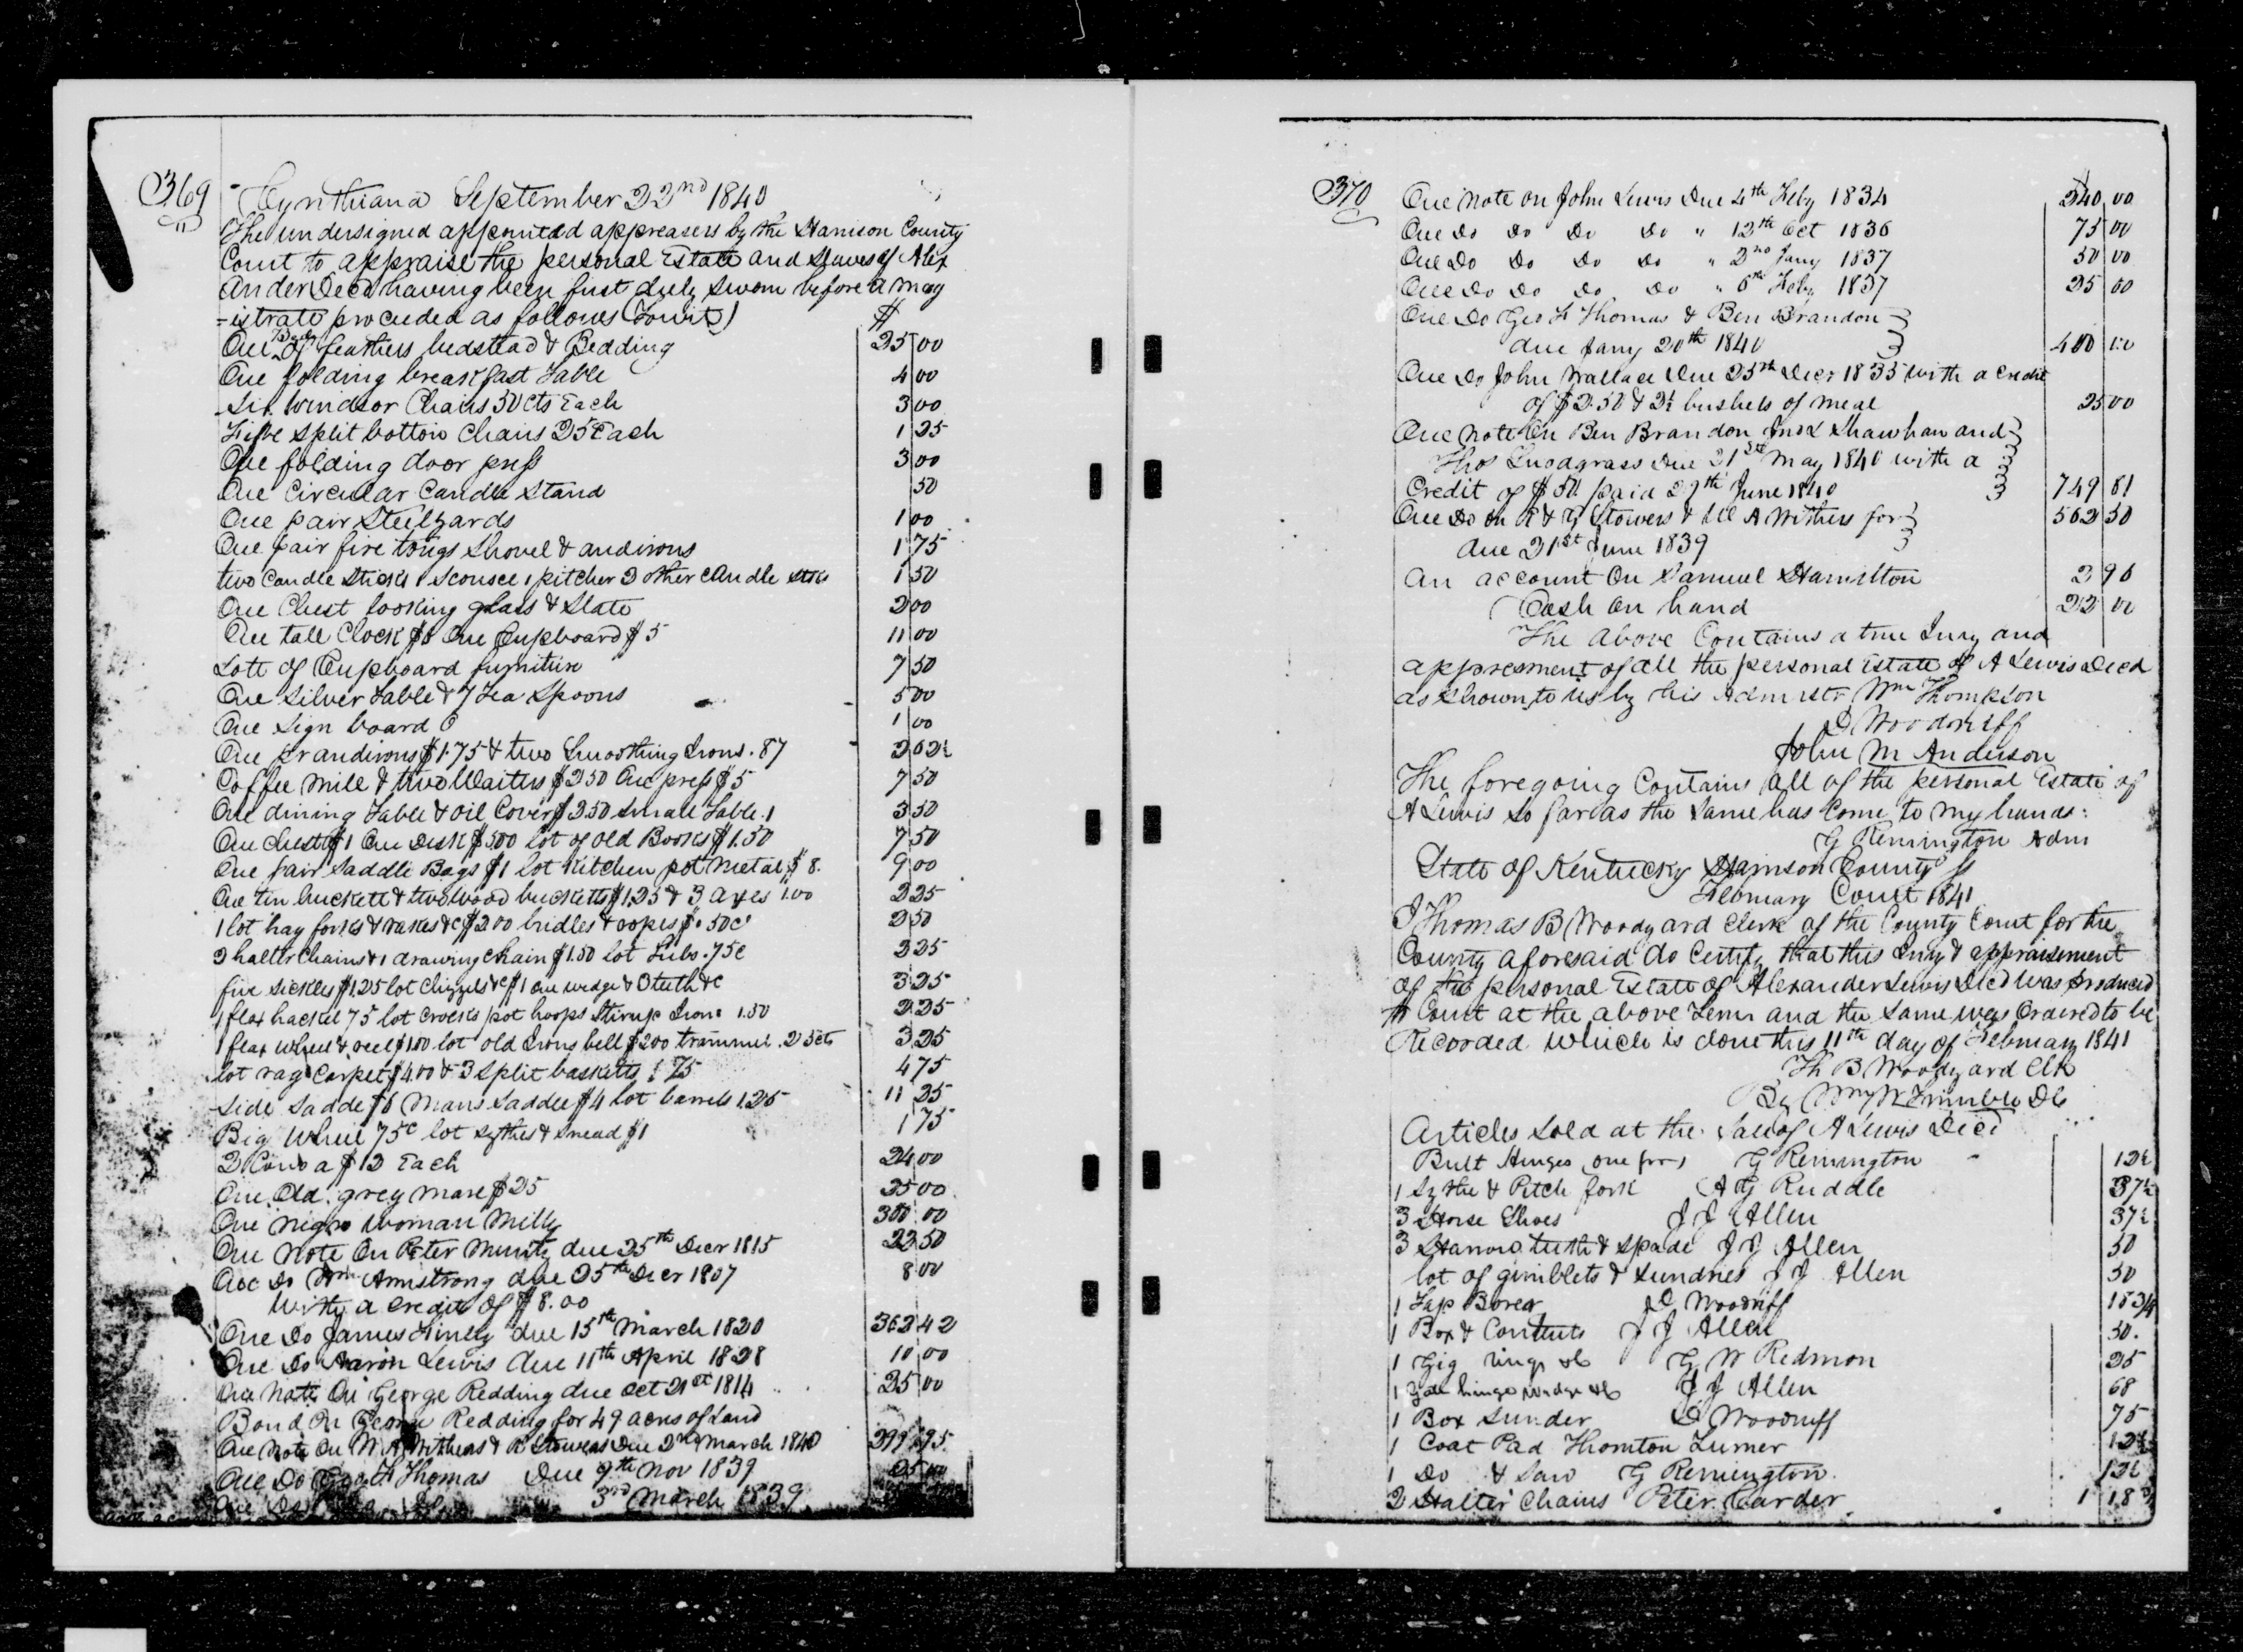 369
Cynthiana September 22nd 1840
The undersigned appointed appreasers by the Harrison County
Court to appraise the personal Estate and Slaves of Alex
ander Decd having been first duly sworn before a mag
=istrate proceeded as follows (Towit) $
One Bed of feathers bedstead & Bedding 25 00
One folding breakfast Table 4 00
Six Windsor Chairs 50 cts Each 3 00
Five split bottom Chairs 25 Each 1 25
One folding door press 3 00
One Circular Candle Stand 50
One pair Steelyards 1 00
One pair fire tongs Shovel & andirons 1 75
two Candle Sticks 1 Sconsce 1 pitcher 2 other Candle Stks 1 50
One Chest looking glass & Slate 2 00
One tall Clock $6 One Cupboard $5 11 00
Lott of Cupboard furniture 7 50
One Silver Table & 7 Tea Spoons 5 00
One Sign board 1 00
One pr andirons $1.75 & two Smoothing Irons .87 2 62½
Coffee Mill & two Waiters $2 50 One press $5 7 50
One dining Table & oil Cover $2 50 small Table .1 3 50
One Chest $1 One Desk $5 00 lot of old Books $1.50 7 50
One pair Saddle Bags $1 lot Kitchen pot metal $8. 9 00
One tin buckett & two wood bucketts $1.25 & 3 Axes 1.00 2 25
1 lot hay forks & rakes &c $2 00 bridles & ropes $0 50c 2 50
2 halter Chains & 1 drawing Chain $1.50 lot Tubs .75c 2 25
five Sickles $1.25 lot Chizzels &c $1 one wedge & 3 teeth &c 3 25
1 flax hackel 75 lot Crocks pot hoops Stirrup Irons 1.50 2 25
1 flax wheel & reel $1 00 lot old Irons bell $2 00 trammel .25 cts 3 25
lot rag Carpet $4.00 & 3 Split basketts 75 4 75
Side Sadde $6 Mans Saddle $4 lot barrels 1.25 11 25
Big Wheel 75c lot Sythes & Snead $1 1 75
2 Cows a $12 Each 24 00
One Old grey Mare $25 25 00
One negro Woman Milly 300 00
One Note On Peter due 25th Decr 1815 22 50
One Do Wm Armstrong due 25th Decr 1807 8 00
With a Credit of $8.00
One Do James Finley due 15th March 1820 362 42
One Do Aaron Lewis due 11th April 1828 10 00
One Note On George Redding due Oct 21st 1814 25 00
Bond On George Redding for 49 acres of Land
One Note On W A Withers & R Stowers Due 2nd March 1840 299 95
One Do Geo F Thomas Due 9th Nov 1839 25 00
3rd March 1839
370
One Note on John Lewis Due 4th Feby 1834 $ 240 00
One Do Do Do Do " 12th Oct 1836 75 00
One Do Do Do Do " 2nd Jany 1837 50 00
One Do Do Do Do " 6th Feby 1837 25 00
One Do Geo F Thomas & Ben Brandon
due Jany 20th 1840 400 00
One Do John Wallace Due 25th Decr 1835 with a Credit
of $2.50 & 2½ bushels of meal 25 00
One Note On Ben Brandon Shawhan and
Thos Snodgrass Due 21st May 1840 with a
Credit of $50. paid 29th June 1840 749 81
One Do on R & G Stowers & W A Withers for 562 50
due 21st June 1839
An account On Samuel Hamilton 2 96
Cash On hand 22 00
The above Contains a true Invy and
appresment of all the personal Estate of A Lewis Decd
as shown to us by his Admistr Wm Thompson
D Woodruff
John M Anderson
The foregoing Contains all of the personal Estate of
A Lewis So far as the Same has Come to my hands:
G Remington Adm
State of Kentucky Harrison County Ss
February Court 1841
I Thomas B Woodyard Clerk of the County Court for the
County aforesaid do Certify that this Invy & appraisement
of the personal Estate of Alexander Lewis Decd was produced
to Court at the above Term and the Same was Ordered to be
Recorded Which is done this 11th day of February 1841
Th B Woodyard Clk
By Wm W Trimble Dc
Articles Sold at the Sale of A Lewis Decd
Butt Hinges one pr G Remington 12½
1 Sythe & Pitch fork A G Ruddle 37½
3 Horse Shoes J J Allen 37½
3 Harrow teeth & Spade J J Allen 50
lot of gimblets & Sundries J J Allen 50
1 Tap Borer D Woodruff 18¾
1 Box & Contents J J Allen 50.
1 Gig rings &c G W Redmon 25
1 Gate hinge wedge &c J J Allen 68
1 Box Sunder D Woodruff 75
1 Coat Pad Thornton Turner 12½
1 Do & Saw G Remington 12½
2 Halter Chains Peter Carder 1 18¾